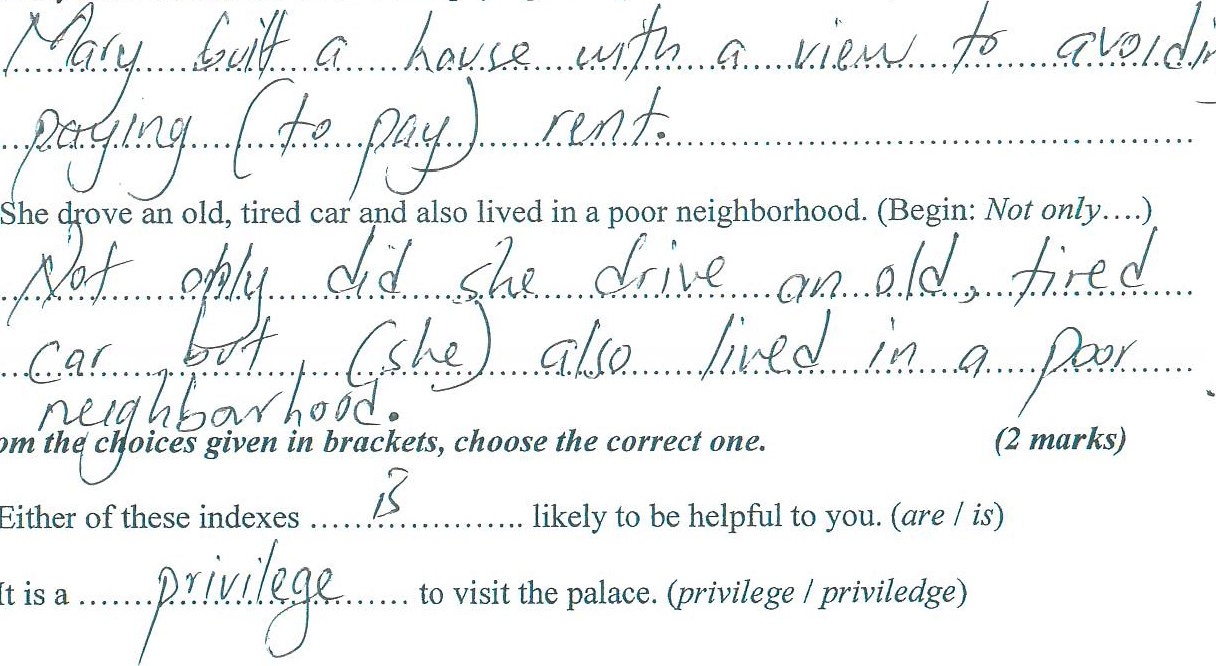 Mary built a house with a view to avoidin
paying (to pay) rent.
She drove an old, tired car and also lived in a poor neighborhood. (Begin: Not only….)
Not only did she drive an old, tired
car, but, (she) also lived in a poor
neighbarhood.
om the choices given in brackets, choose the correct one. (2 marks)
Either of these indexes ......is.................. likely to be helpful to you. (are / is)
It is a .......privilege....... to visit the palace. (privilege / priviledge)